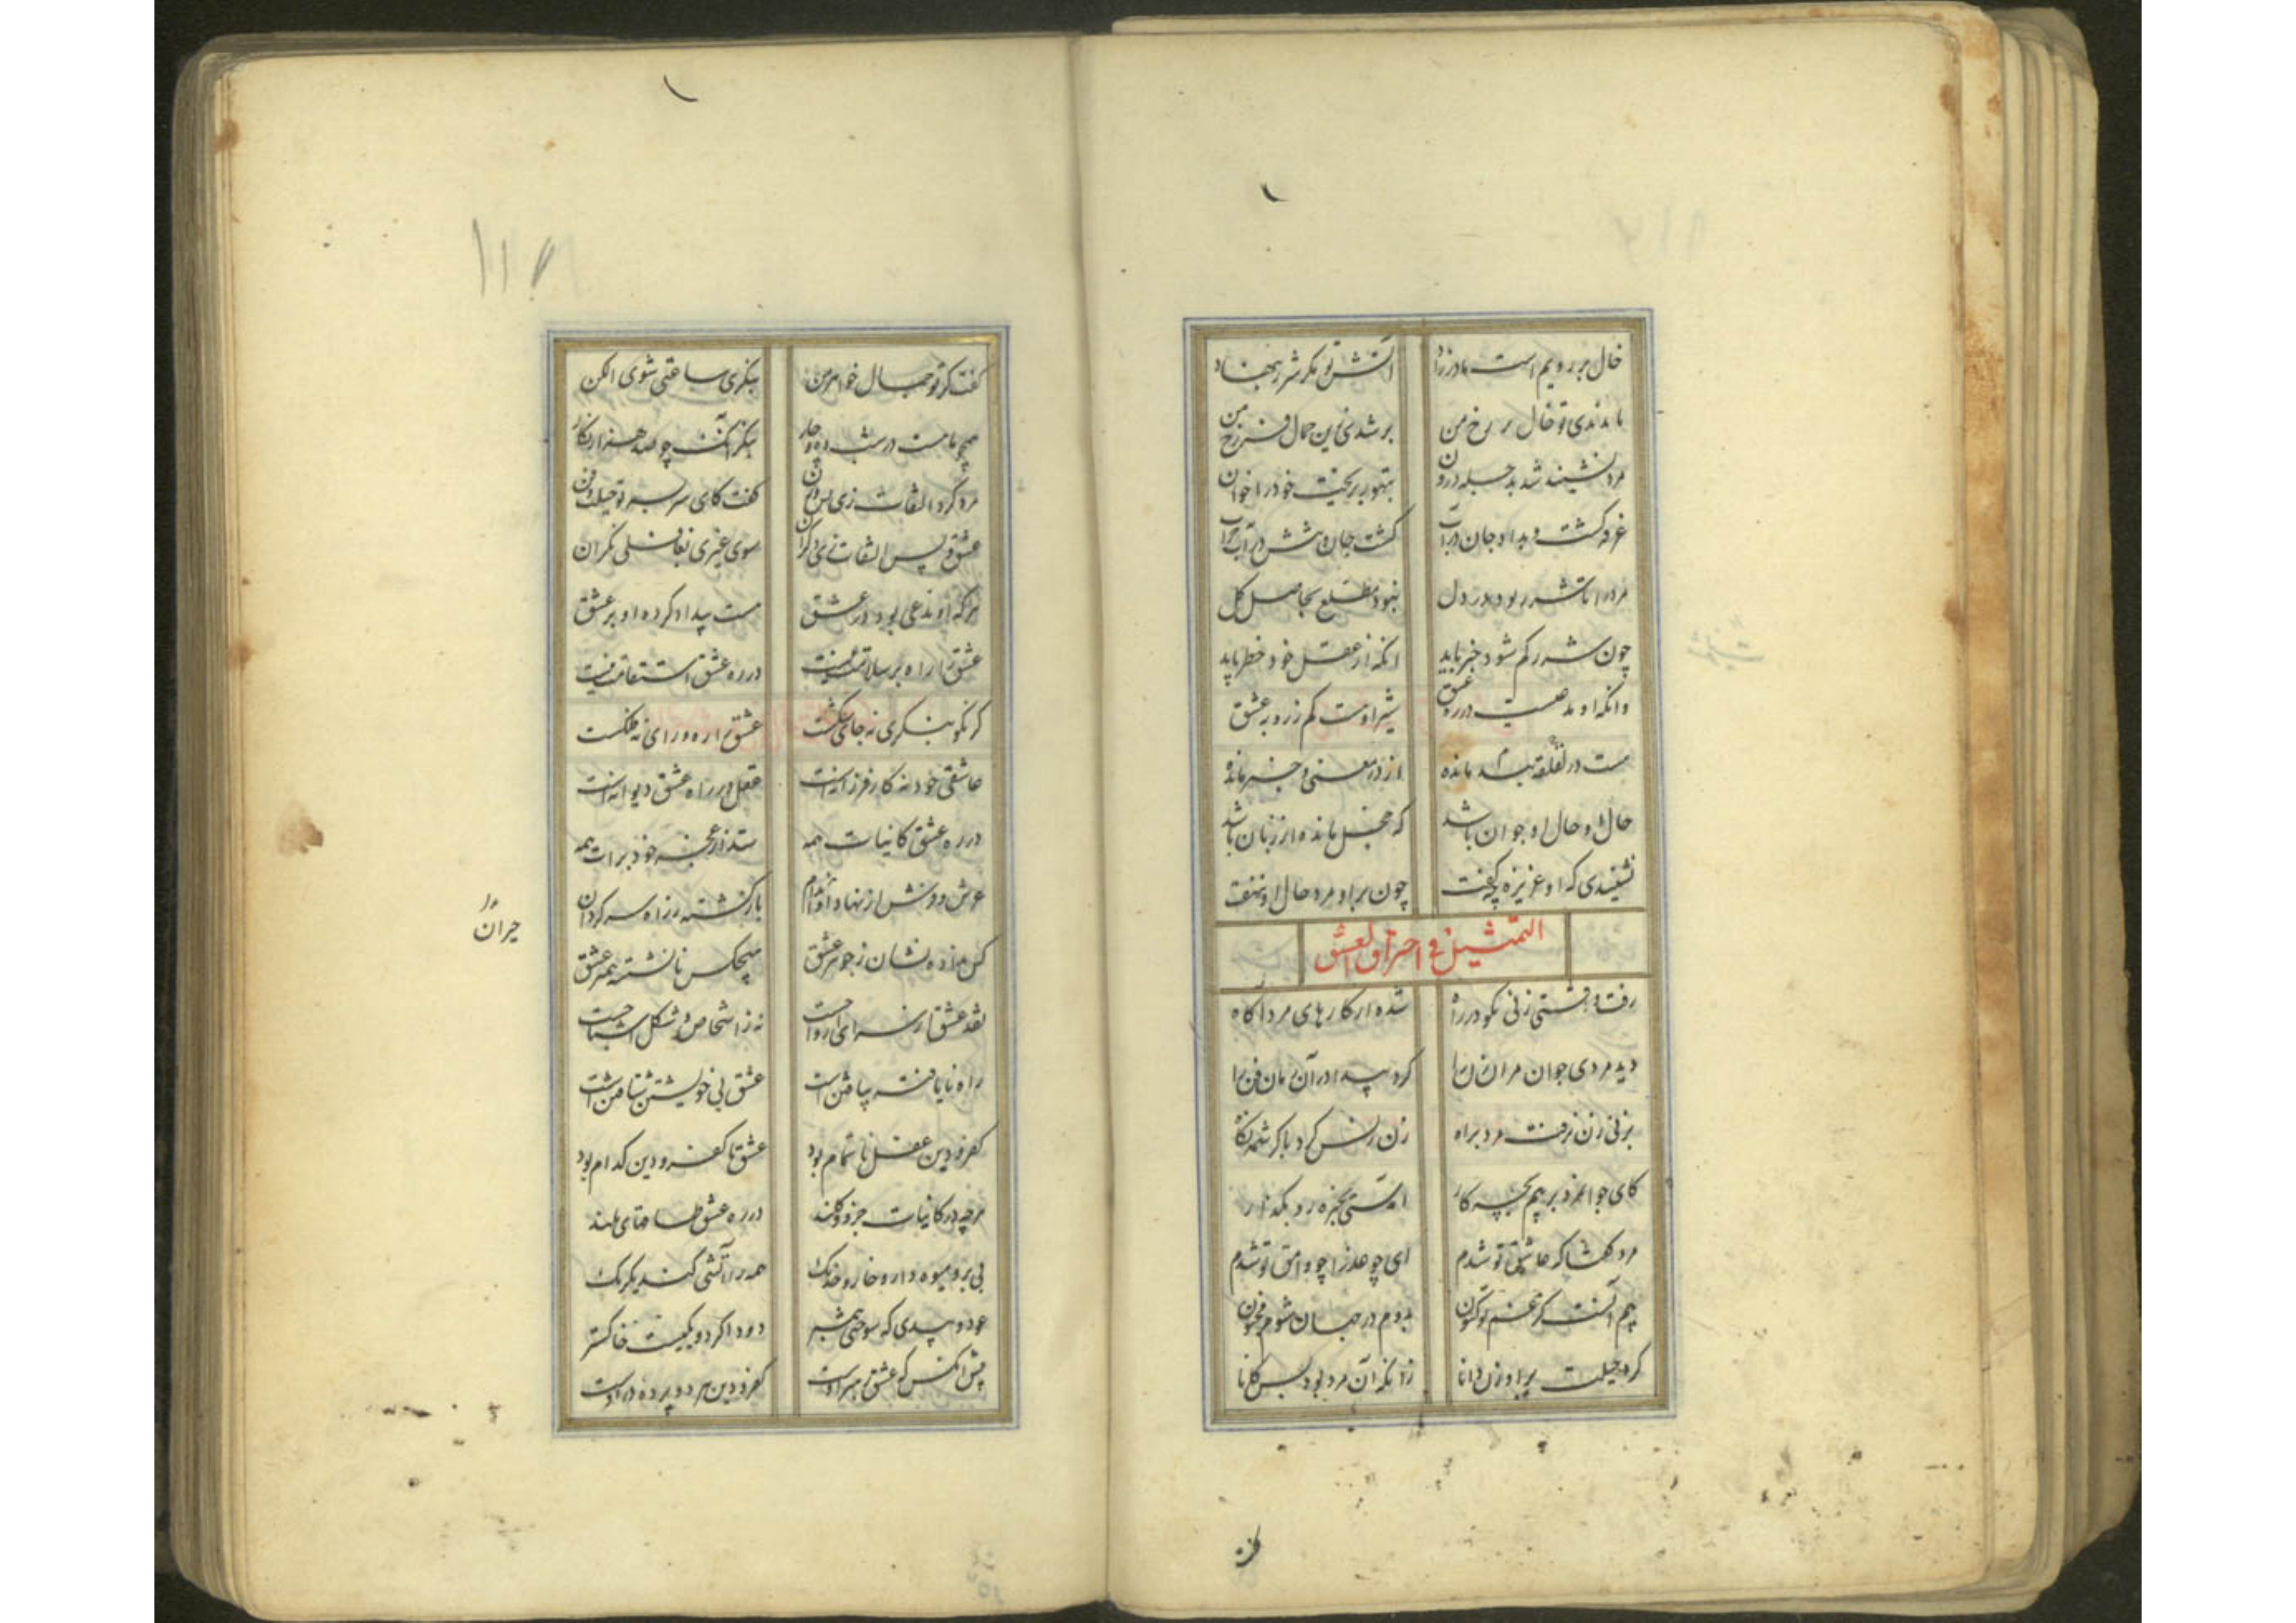 خال بر رویم است مادرزاد آتش تو مگر شرر بنهاد
تا ندیدی تو خال بر رخ من بر شدی زین جمال فرخ من
مرد نشنید شد به حیله درون بتهور بریخت خود را خون
غرقه گشت و بداد جان در آب گشت جان و تنش در آب خراب
مرد را تا شرر بود در دل نبود مطلع بحاصل کل
چون شرر کم شود خبر یابد آنکه از عقل خود خطر یابد
وانکه او مدعیست در ره عشق شیر او هست کم ز روبه عشق
هست در قلقه مانده از در معنی و خبر مانده
حال او حال او جوان باشد که خجل مانده از زنان باشد
نشنیدی که او عزیزه چه گفت چون بر او مرد حال او ننهفت
التمثیل فی احتراق العشق
رفت وقتی زنی نکو در راه شده از کارهای مرد آگاه
دید مردی جوان مر آن زن را کرد پیدا در آن زمان فن را
بر پی زن برفت مرد براه زن ز پس کرد با کرشمه نگاه
کای جوانمرد بر پیم بچه کار آمدستی بخیره رو بگذار
مرد گفتا که عاشق تو شدم ای چو عذرا چو وامق تو شدم
بیم آنست کز غم تو کنون بدوم در جهان شوم مجنون
کرد حیلت بر او زن دانا زانکه آن مرد بود بس کانا
گفت گر تو جمال خواهر من بنگری ساعتی شوی الکن
همچو ماهست در شب ده و چار بنگر آنک چو صد هزار نگار
مرد کرد التفات زی پس و زن گفت کای سر بسر تو حیلت و فن
عشق و پس التفات زی دگران سوی غیری بغافلی نگران
هر که او مدعی بود در عشق هست بیداد کرده او بر عشق
عشق را راه بر سلامت نیست در ره عشق استقامت نیست
گر نکو بنگری نه جای شکست عشق را ره ورای نه فلکست
عاشقی خود نه کار فرزانه است عقل در راه عشق دیوانه است
در ره عشق کاینات همه ستد از عجز خود برات همه
عرش و فرش از نهاد او بازگشته ز راه سرگردان
کس نداده نشان ز جوهر عشق هیچکس نانشسته همبر عشق
نقد عشق از سرای ارواحست نه ز اشخاص و شکل اشباحست
راه نایافته بیافتن است عشق بی خویشتن شتافتن است
کفر و دین عقل ناتمام بود عشق تا کفر و دین کدام بود
هرچه در کاینات جزو و کلند در ره عشق طاقهای پلند
بی بر و میوه دار و خار و خدنگ همه را آتشی کند یکرنگ
عود و بیدی که سوختی همبر دود اگر دو یکیست خاکستر
پیش آنکس که عشق رهبر اوست کفر و دین هر دو پرده در اوست
حیران